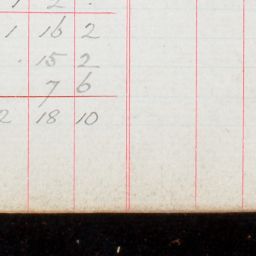 1 2 .
1 16 2
. 15 2
7 6
2 18 10